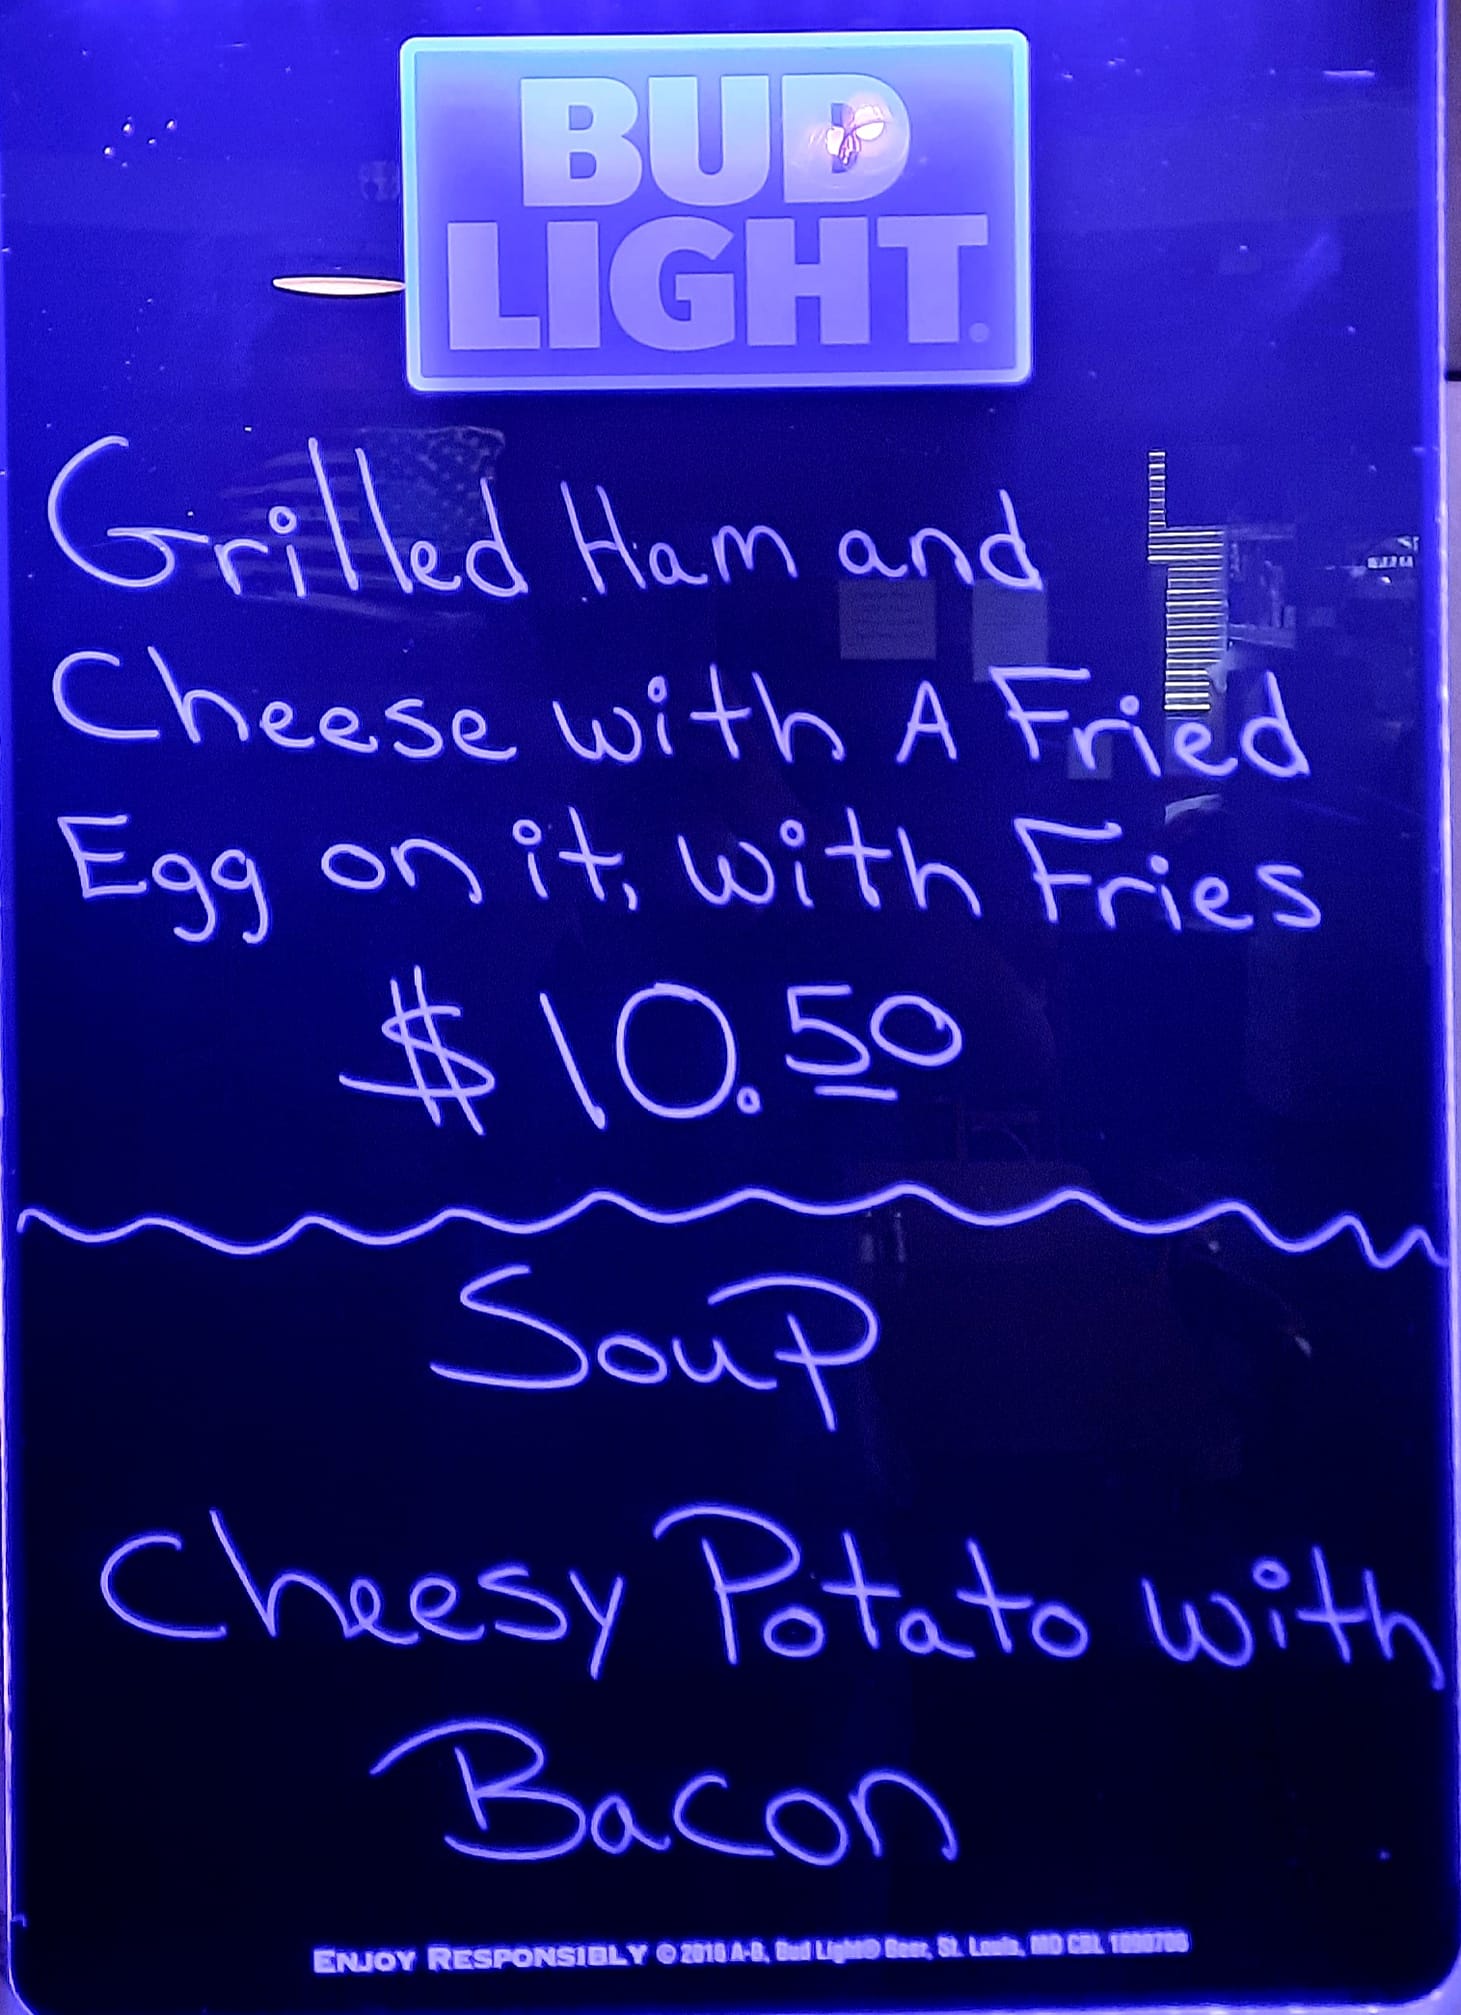 BUD
LIGHT
Grilled Ham and
Cheese with A Fried
Egg on it, with Fries
$10.50
Soup
Cheesy Potato with
Bacon
ENJOY RESPONSIBLY © 2016 A-B, Bud Light® Beer, St. Louis, MO